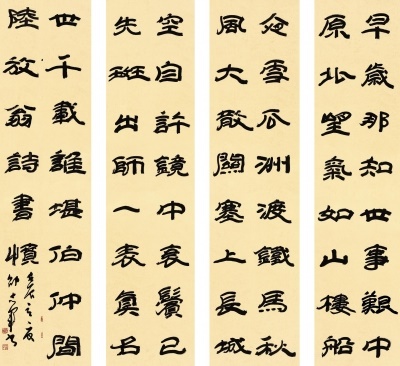 早歲那知世事艱中
原北望氣如山樓船
夜雪瓜洲渡鐵馬秋
風大散關塞上長城
空自許鏡中衰鬢已
先斑出師一表眞名
世千載誰堪伯仲間
陸放翁詩書憤